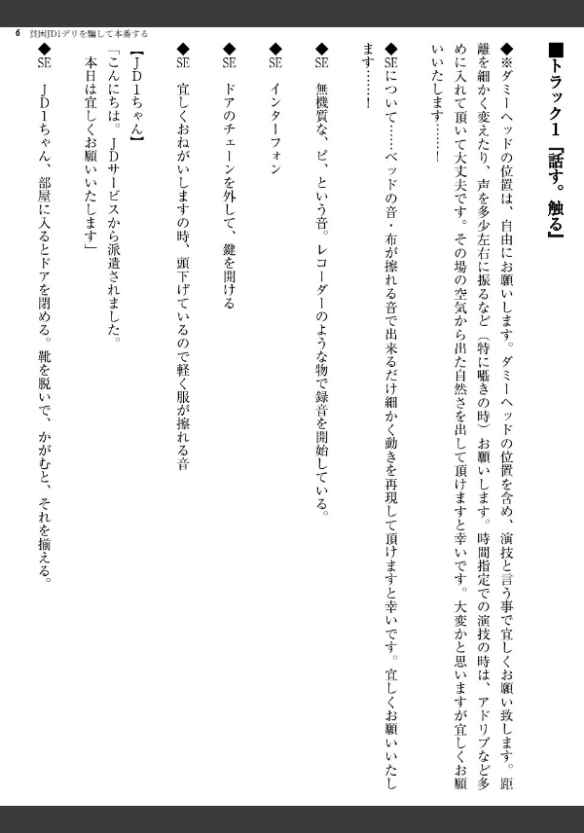 6　貧困JD1デリを騙して本番する
■トラック１『話す。触る』
◆※ダミーヘッドの位置は、自由にお願いします。ダミーヘッドの位置を含め、演技と言う事で宜しくお願い致します。距
離を細かく変えたり、声を多少左右に振るなど（特に囁きの時）お願いします。時間指定での演技の時は、アドリブなど多
めに入れて頂いて大丈夫です。その場の空気から出た自然さを出して頂けますと幸いです。大変かと思いますが宜しくお願
いいたします……！
◆SEについて……ベッドの音・布が擦れる音で出来るだけ細かく動きを再現して頂けますと幸いです。宜しくお願いいたし
ます……！
◆SE　無機質な、ピ、という音。レコーダーのような物で録音を開始している。
◆SE　インターフォン
◆SE　ドアのチェーンを外して、鍵を開ける
◆SE　宜しくおねがいしますの時、頭下げているので軽く服が擦れる音
【JD1ちゃん】
「こんにちは。JDサービスから派遣されました。
本日は宜しくお願いいたします」
◆SE　JD1ちゃん、部屋に入るとドアを閉める。靴を脱いで、かがむと、それを揃える。